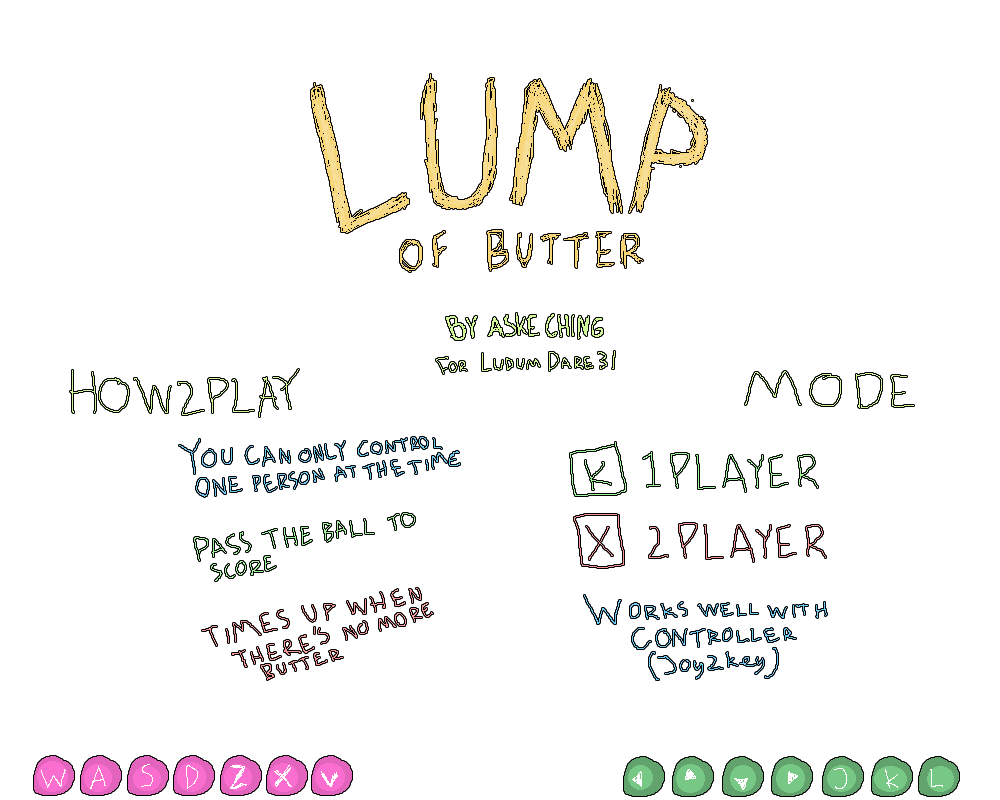 LUMP
OF BUTTER
BY ASKE CHING
FOR LUDUM DARE 31
HOW2PLAY
YOU CAN ONLY CONTROL
ONE PERSON AT THE TIME
PASS THE BALL TO
SCORE
TIMES UP WHEN
THERE'S NO MORE
BUTTER
MODE
K 1PLAYER
X 2PLAYER
WORKS WELL WITH
CONTROLLER
(Joy2key)
W A S D Z X V
J K L